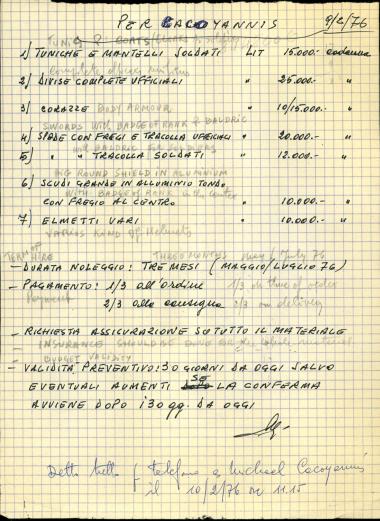 PER CACOYANNIS 9/2/76
TUNICS & COATS
1) TUNICHE E MANTELLI SOLDATI LIT 15.000.- cadauna
complete officers
2) DIVISE COMPLETE UFFICIALI " 25.000.- "
3) CORAZZE BODY ARMOUR " 10/15.000.- "
SWORDS WITH BADGE OF RANK & BALDRIC
4) SPADE CON FREGI E TRACOLLA UFFICIALI " 20.000.- "
BALDRIC FOR SOLDIERS
5) " " TRACOLLA SOLDATI " 12.000.- "
BIG ROUND SHIELD IN ALUMNIUM
6) SCUDI GRANDE IN ALLUMINIO TONDO
WITH BADGE in the center
CON FREGIO AL CENTRO " 10.000.- "
7) ELMETTI VARI " 10.000.- "
VARIOUS KIND of Helmets
TERM of HIRE THREE MONTHS may / July 76
- DURATA NOLEGGIO: TRE MESI (MAGGIO/LUGLIO 76)
- PAGAMENTO: 1/3 all'ordine 1/3 on time of order
Payment 2/3 alla consegna 2/3 on delivery
- RICHIESTA ASSICURAZIONE SU TUTTO IL MATERIALE
INSURANCE SHOULD BE DONE on the whole material
BUDGET VALIDITY
- VALIDITA' PREVENTIVO: 30 GIORNI DA OGGI SALVO
EVENTUALI AUMENTI SE LA CONFERMA
AVVIENE DOPO i 30 gg. DA OGGI
Detto tutto telefono a Michael Cacoyannis
il 10/2/76 ore 11.15